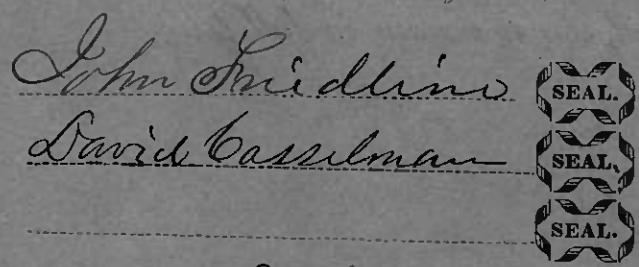 John Friedline SEAL.
David Casselman SEAL.
SEAL.